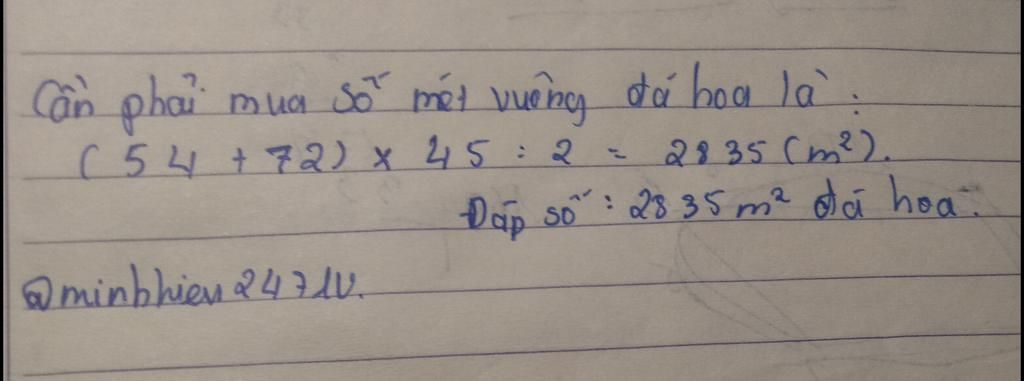 Cần phải mua số mét vuông đá hoa là:
(54 + 72) x 45 : 2 = 2835 (m²).
Đáp số: 2835 m² đá hoa.